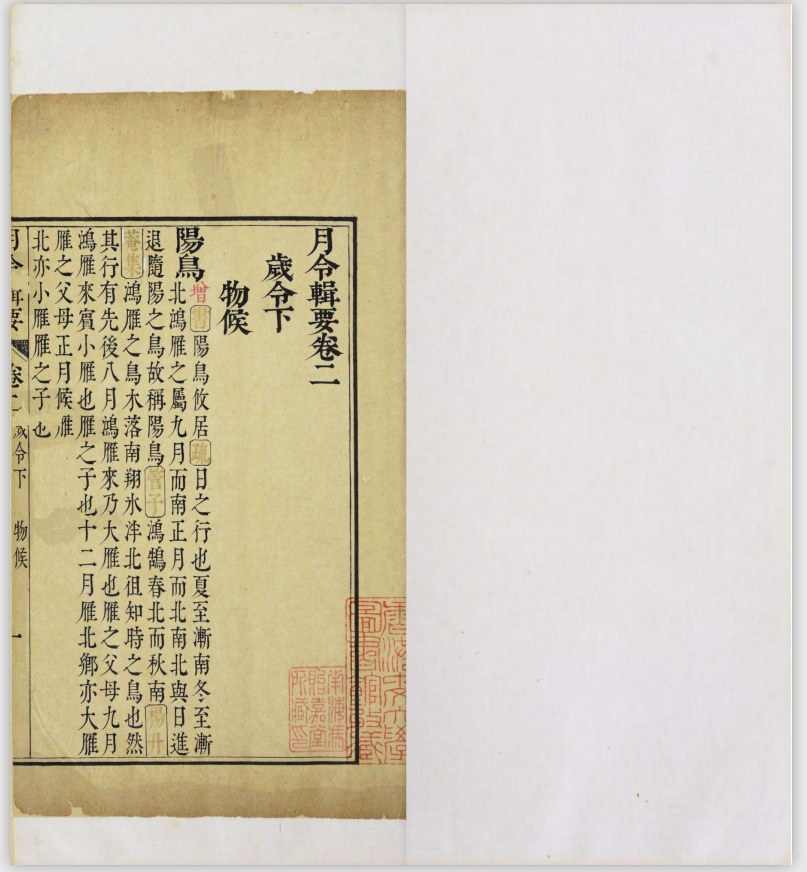 月令輯要卷二
歲令下
物候
陽鳥增書陽鳥攸居疏日之行也夏至漸南冬至漸
北鴻雁之屬九月而南正月而北南北與日進
退隨陽之鳥故稱陽鳥管子鴻鵠春北而秋南楊升
菴集鴻雁之鳥木落南翔氷泮北徂知時之鳥也然
其行有先後八月鴻雁來乃大雁也雁之父母九月
鴻雁來賓小雁也雁之子也十二月雁北鄉亦大雁
雁之父母正月候雁
北亦小雁雁之子也
月令輯要 卷二 歲令下 物候 一
香港中文大學